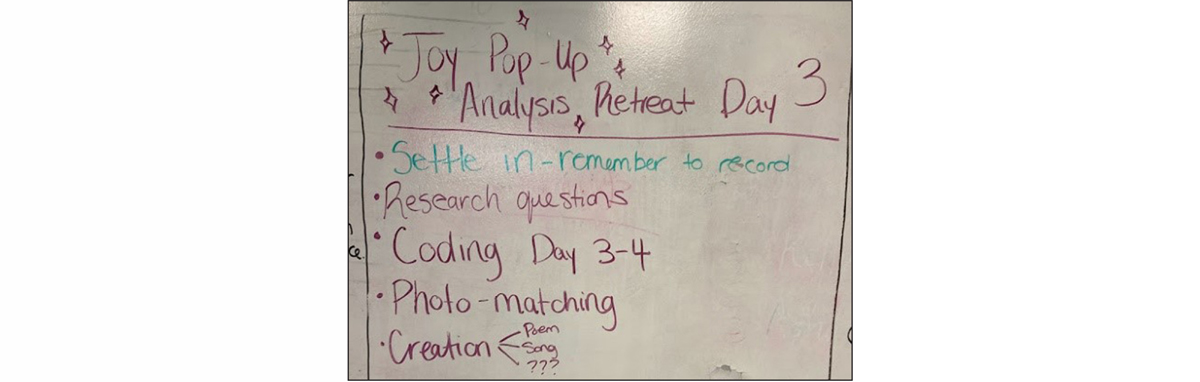 Joy Pop-Up
Analysis Retreat Day 3
• Settle in - remember to record
• Research questions
• Coding Day 3-4
• Photo-matching
• Creation < Poem
Song
???
ce